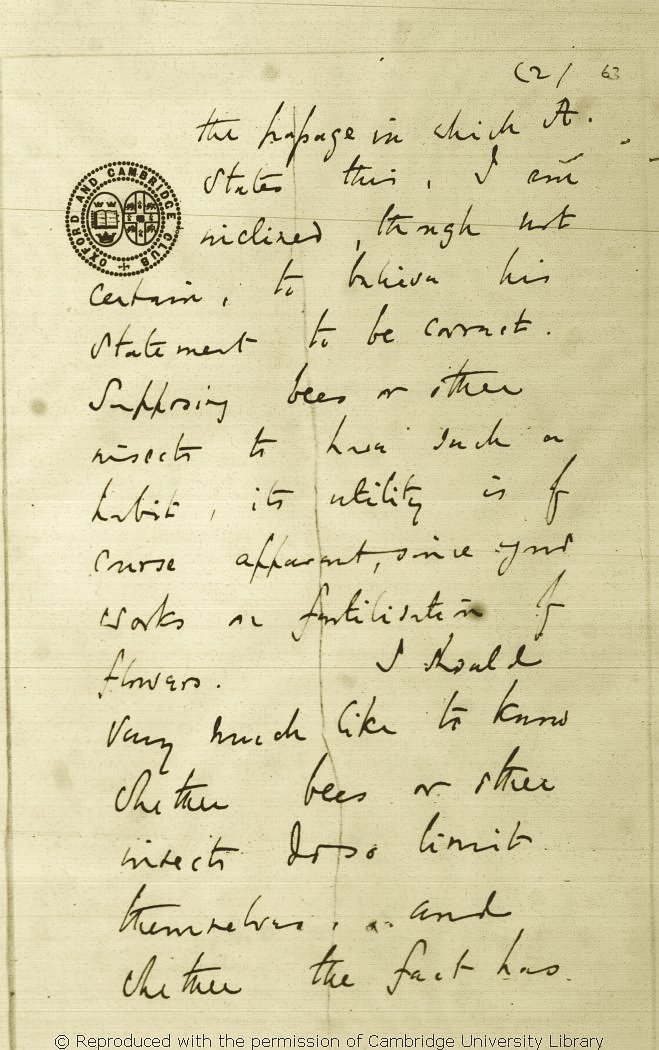 (2) 63
the passage in which A.
states this, I am
OXFORD AND CAMBRIDGE CLUB
inclined, though not
certain, to believe his
statement to be correct.
Supposing bees or other
insects to have such a
habit, its utility is of
course apparent, since your
works on fertilisation of
flowers. I should
very much like to know
whether bees or other
insects do so limit
themselves, and
whether the fact has
© Reproduced with the permission of Cambridge University Library